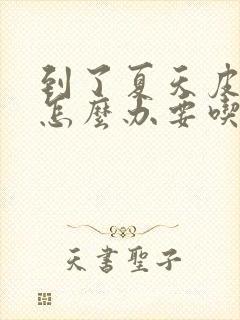 到了夏天皮
怎麼办要喫
天書聖子